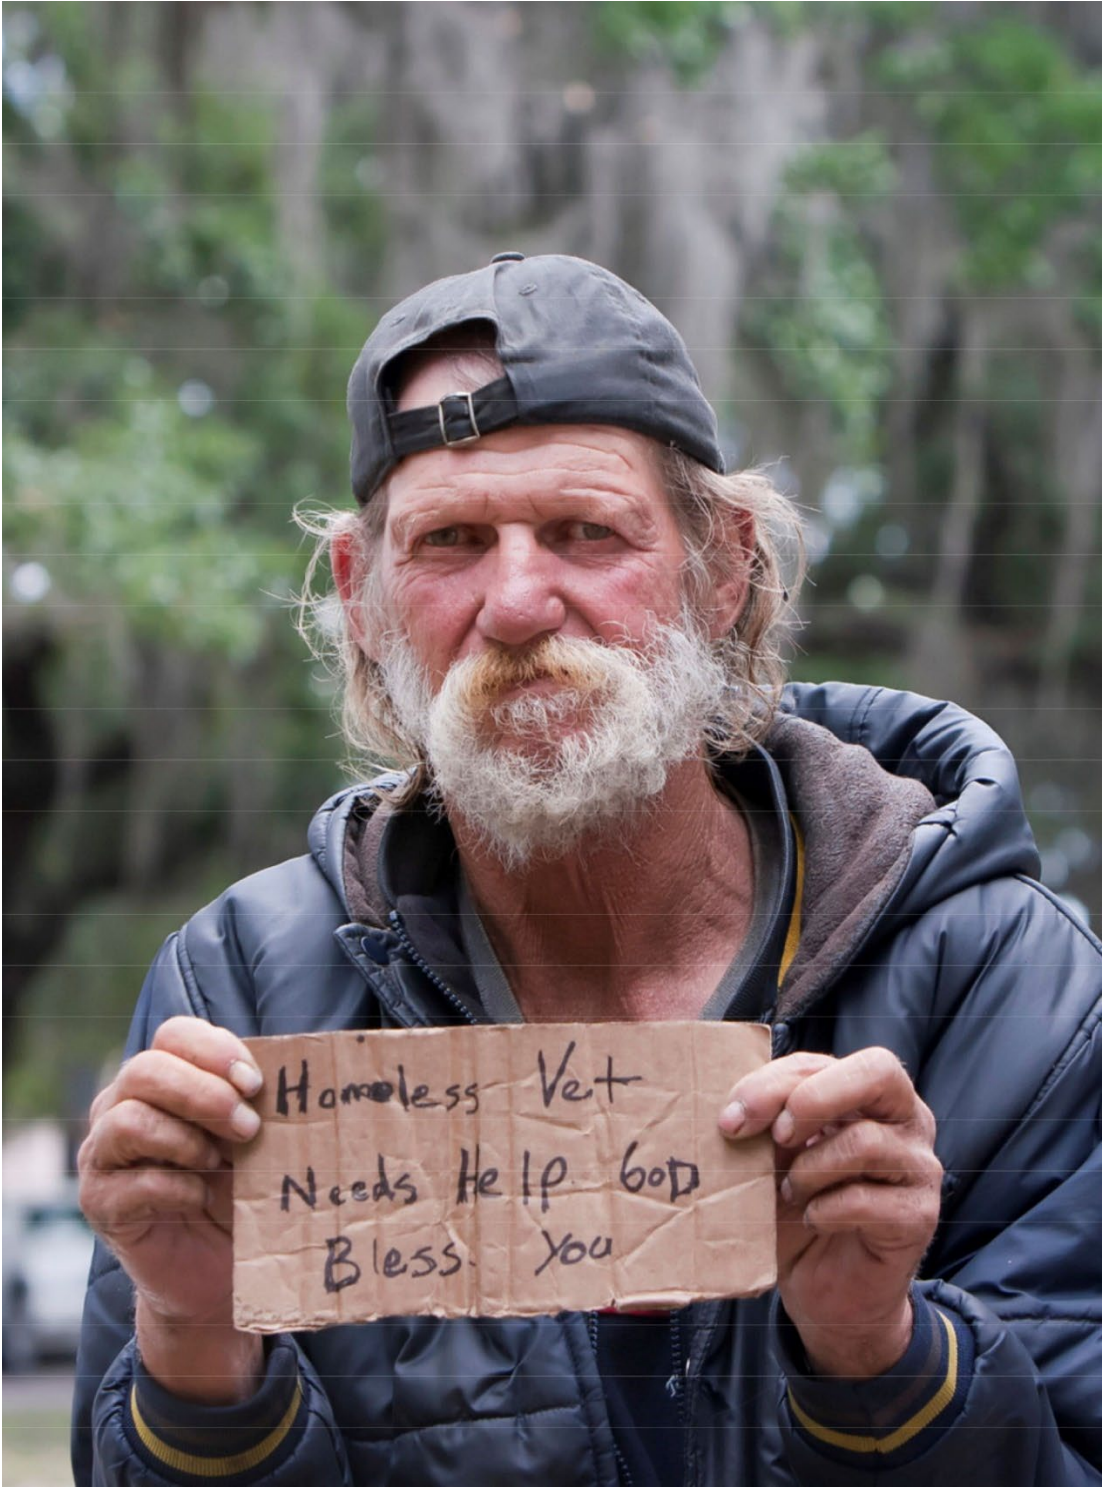 Homeless Vet
Needs Help GoD
Bless. You